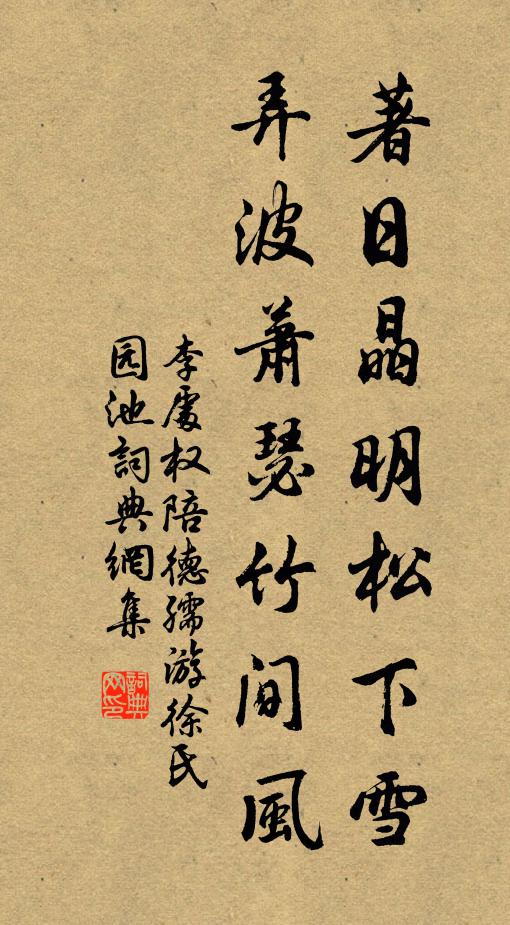 著日晶明松下雪
弄波萧瑟竹间風
李處权陪德孺游徐氏
园池詞典網集
詞典
网印